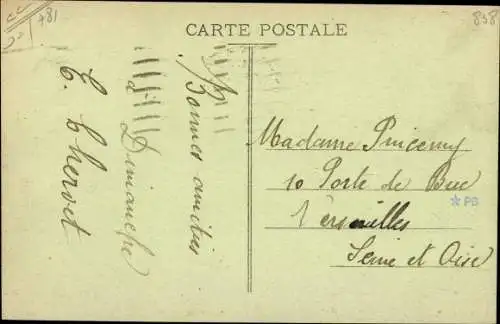 781
858
CARTE POSTALE
Bonnes amitiés
à Dimanche
E. Thervet
Madame Princemy
10 Porte de Buc
Versailles
Seine et Oise
PB